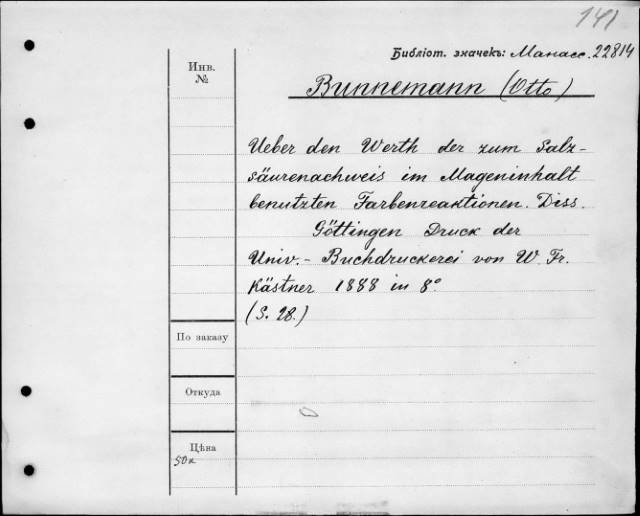 141
Библіот. значекъ: Манасс. 22814
Инв.
№
Bunnemann (Otto)
Ueber den Werth der zum Salz-
säurenachweis im Mageninhalt
benutzten Farbenreaktionen. Diss.
Göttingen Druck der
Univ.- Buchdruckerei von W. Fr.
Kästner 1888 in 8°
(S. 28.)
По заказу
Откуда
Цѣна
50к